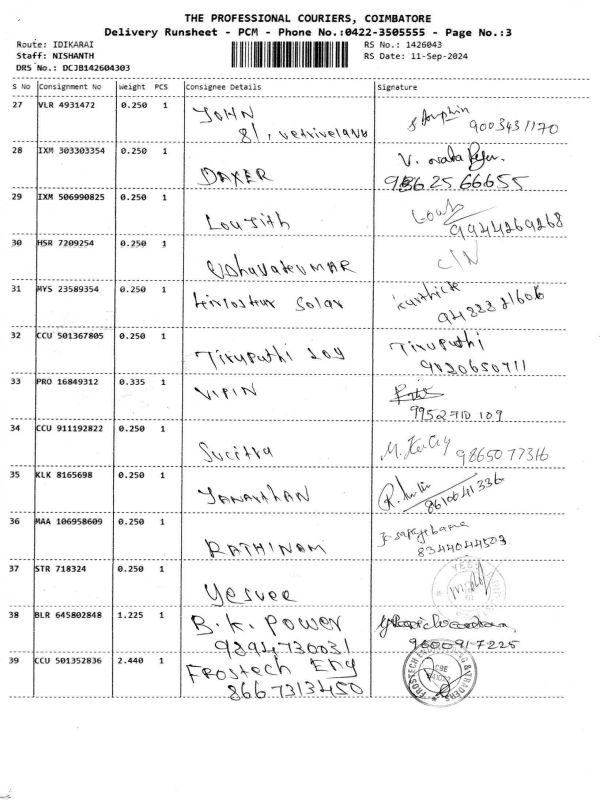 THE PROFESSIONAL COURIERS, COIMBATORE
Delivery Runsheet - PCM - Phone No.:0422-3505555 - Page No.:3
Route: IDIKARAI RS No.: 1426043
Staff: NISHANTH RS Date: 11-Sep-2024
DRS No.: DCJB142604303
S No Consignment No Weight PCS Consignee Details Signature
27 VLR 4931472 0.250 1 JOHN
81, vetrivelavu 9003431170
28 IXM 303303354 0.250 1 DAXER V.
98625 66655
29 IXM 506990825 0.250 1 Loujith
9944269268
30 HSR 7209254 0.250 1 Udhayakumar C/N
31 MYS 23589354 0.250 1 Solar Karthick
32 CCU 501367805 0.250 1 Tirupathi Tirupathi
9820650711
33 PRO 16849312 0.335 1 VIPIN
9952710 109
34 CCU 911192822 0.250 1 Sucitra M. 9865077316
35 KLK 8165698 0.250 1 JANARTHAN R.
8610641336
36 MAA 106958609 0.250 1 RATHINAM
8344044503
37 STR 718324 0.250 1 Yesvee
38 BLR 645802848 1.225 1 B.K. Power
9894730031 9600917225
39 CCU 501352836 2.440 1 Frostech Eng
8667313450 CBE